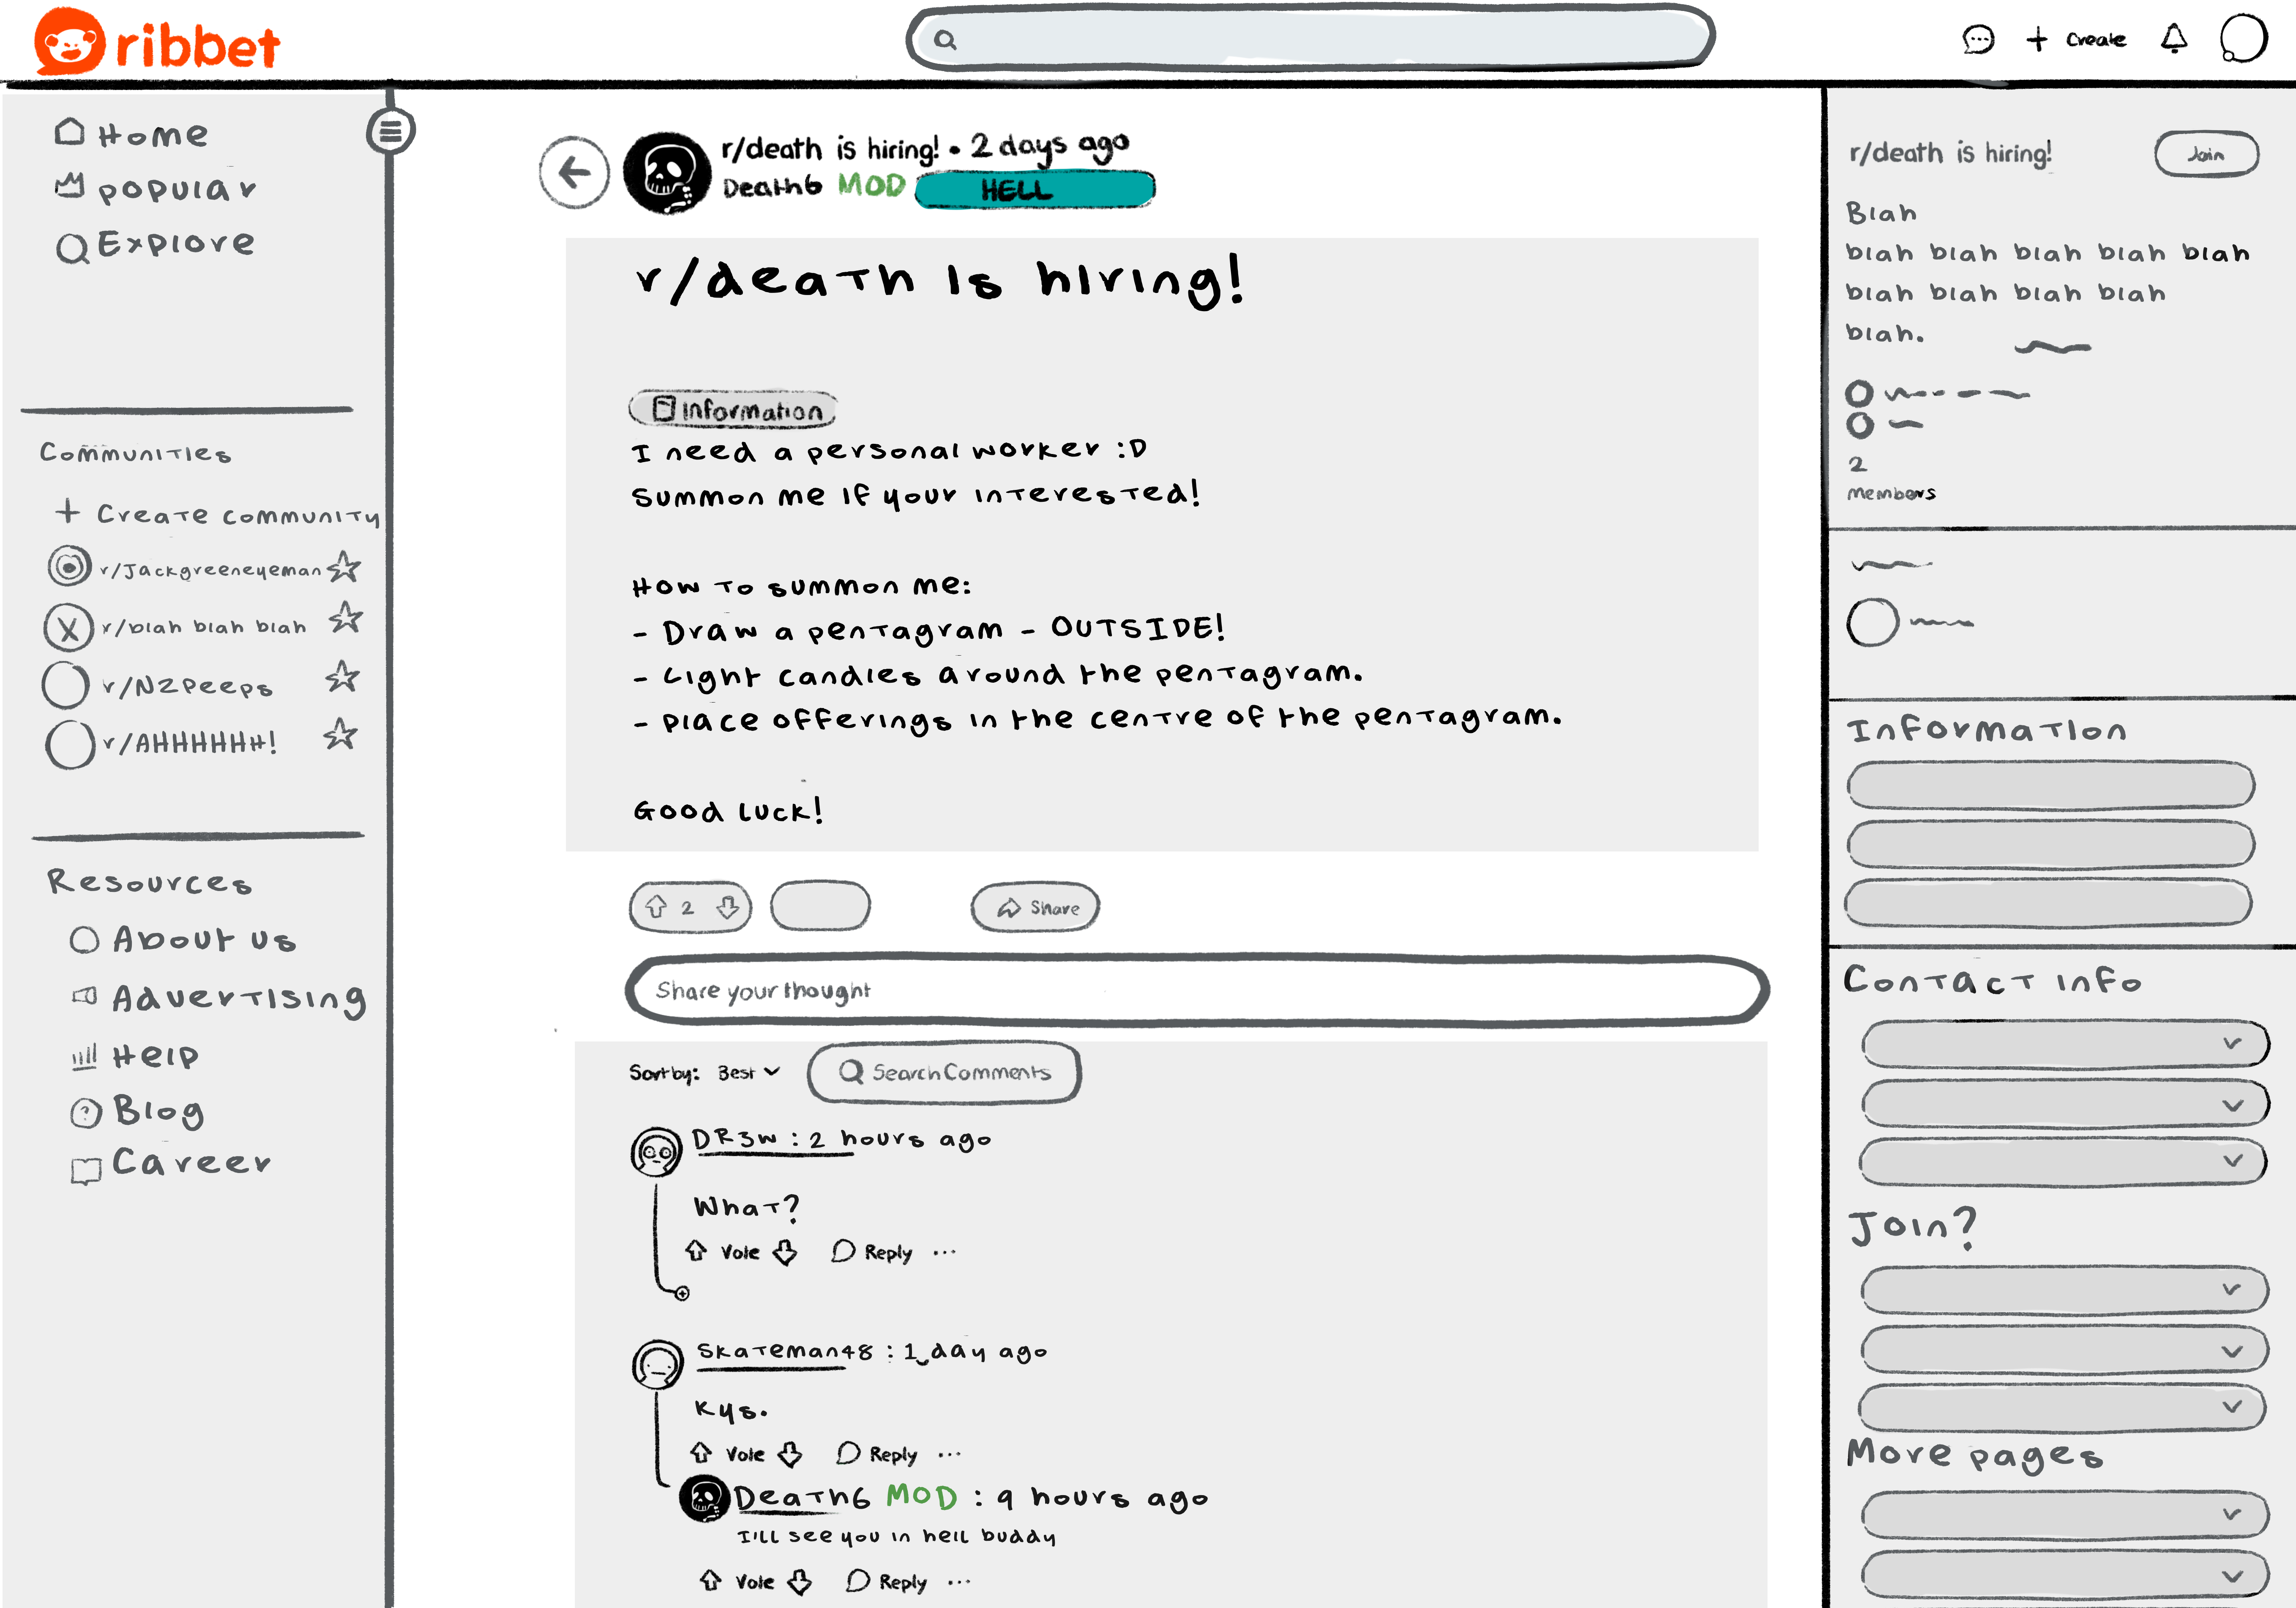 ribbet
Create
Home
Popular
Explore
Communities
+ Create community
r/Jackgreeneyeman
r/blah blah blah
r/NZPeeps
r/AHHHHHH!
Resources
About us
Advertising
Help
Blog
Career
r/death is hiring! • 2 days ago
Death6 MOD HELL
r/death is hiring!
Information
I need a personal worker :D
Summon me if your interested!
How to summon me:
- Draw a pentagram - OUTSIDE!
- Light candles around the pentagram.
- Place offerings in the centre of the pentagram.
Good luck!
2
Share
Share your thought
Sort by: Best
Search Comments
DR3W : 2 hours ago
What?
Vote Reply ...
Skateman48 : 1 day ago
Kys.
Vote Reply ...
Death6 MOD : 9 hours ago
I'll see you in hell buddy
Vote Reply ...
r/death is hiring! Join
Blah
blah blah blah blah blah
blah blah blah blah
blah.
2
members
Information
Contact info
Join?
More pages